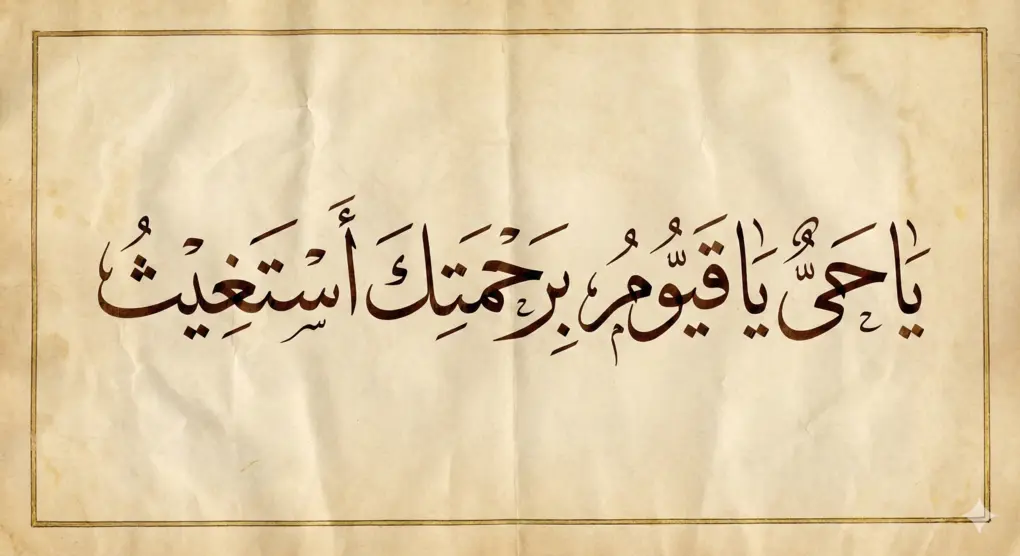 يَا حَيُّ يَا قَيُّومُ بِرَحْمَتِكَ أَسْتَغِيثُ